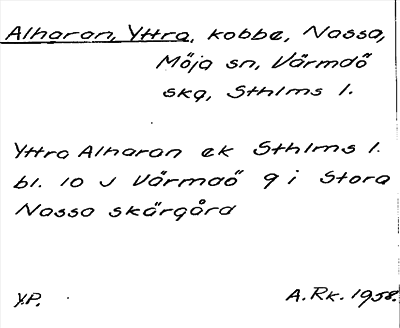 Alharan, Yttra, kobbe, Nassa,
Möja sn, Värmdö
skg, Sthlms l.
Yttra Alharan ek Sthlms l.
bl. 10 J Värmdö 9 i Stora
Nassa skärgård
Y.P. A.Rk. 1958.